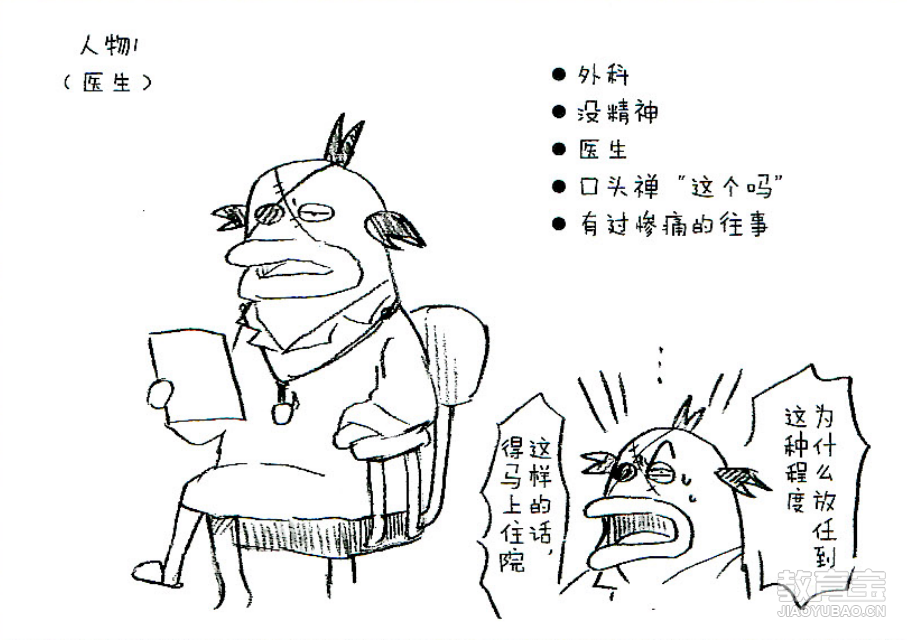 人物1
（医生）
● 外科
● 没精神
● 医生
● 口头禅“这个吗”
● 有过惨痛的往事
为什么放任到
这种程度
…
这样的话，
得马上住院
教育宝
JIAOYUBAO.CN